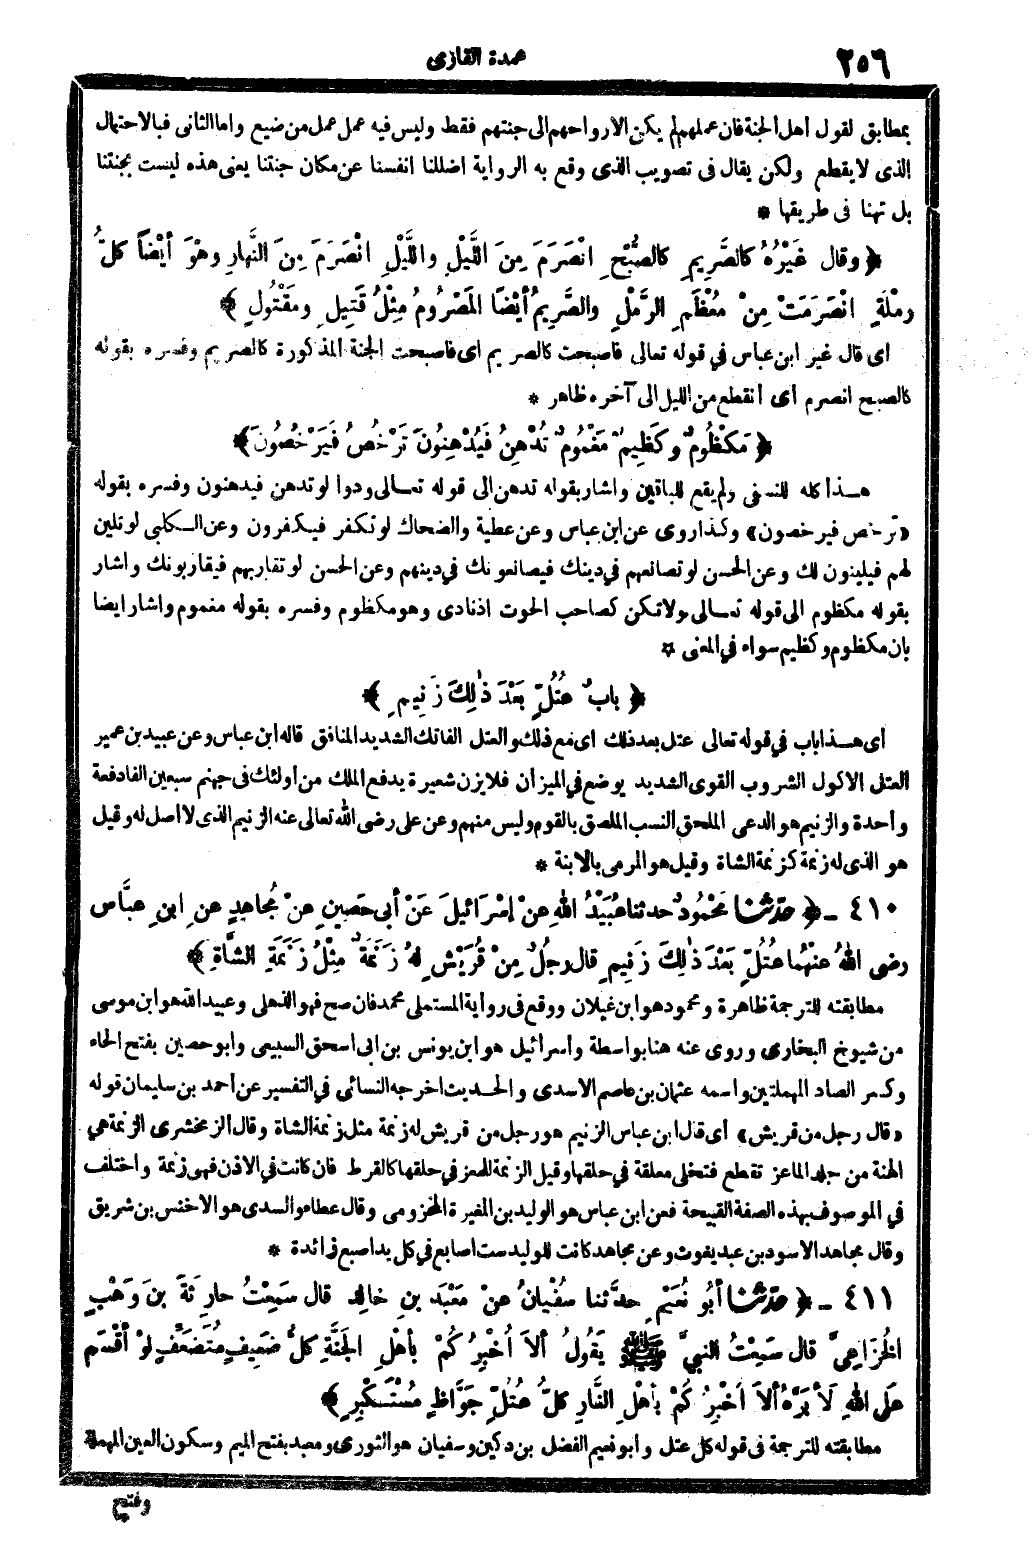 ٢٥٦
عمدة القارى
بمطابق لقول أهل الجنة فان عملهم لم يكن الا رواحهم الى جنتهم فقط وليس فيه عمل عمل من ضيع واما الثانى فبالاحتمال
الذى لا يقطع ولكن يقال فى تصويب الذى وقع به الرواية اضللنا انفسنا عن مكان جنتنا يعنى هذه ليست بجنتنا
بل تهنا فى طريقها *
﴿ وقال غَيْرُهُ كالصَّرِيمِ كالصُّبْحِ انْصَرَمَ مِنَ اللَّيْلِ واللَّيْلِ انْصَرَمَ مِنَ النَّهارِ وهْوَ أيْضاً كلُّ
رمْلَةٍ انْصَرَمَتْ مِنْ مُعْظَمِ الرَّمْلِ والصَّرِيمُ أيْضًا المَصْرُومُ مِثْلُ قَتِيلٍ ومَقْتُولٍ ﴾
اى قال غير ابن عباس في قوله تعالى فاصبحت كالصريم اى فاصبحت الجنة المذكورة كالصريم وفسره بقوله
كالصبح انصرم أى أنقطع من الليل الى آخره ظاهر *
﴿ مَكْظُومٌ وكَظِيمٌ مَغْمُومٌ تُدْهِنُ فَيُدْهِنُونَ تَرْخُصُ فَيَرْخُصُونَ ﴾
هــذا كله للنسفى ولم يقع للباقين واشار بقوله تدهن الى قوله تعــالى ودوا لو تدهن فيدهنون وفسره بقوله
«ترخص فيرخصون» وكذا روى عن ابن عباس وعن عطية والضحاك لو تكفر فيكفرون وعن الـكلبى لو تلين
لهم فيلينون لك وعن الحسن لو تصانعهم في دينك فيصانعونك في دينهم وعن الحسن لو تقاربهم فيقاربونك واشار
بقوله مكظوم الى قوله تعــالى ولا تكن كصاحب الحوت اذ نادى وهو مكظوم وفسره بقوله مغموم واشار ايضا
بان مكظوم وكظيم سواء في المعنى *
﴿ بابٌ عُتُلٍّ بَعْدَ ذٰلِكَ زَنِيمٍ ﴾
أى هــذا باب في قوله تعالى عتل بعد ذلك اى مع ذلك والعتل الفاتك الشديد المنافق قاله ابن عباس وعن عبيد بن عمير
العتل الاكول الشروب القوى الشديد يوضع في الميزان فلا يزن شعيرة يدفع الملك من أولئك فى جهنم سبعين الفا دفعة
واحدة والزنيم هو الدعى الملحق النسب الملصق بالقوم وليس منهم وعن على رضى الله تعالى عنه الزنيم الذى لا أصل له وقيل
هو الذى له زنمة كزنمة الشاة وقيل هو المرمى بالابنة *
٤١٠ ـ ﴿ حدثنا مَحْمُودٌ حدثنا عُبَيْدُ اللهِ عنْ إسْرَائيلَ عَنْ أبى حَصِينٍ عنْ مُجاهِدٍ عنِ ابنِ عبَّاسٍ
رضى اللهُ عنْهُما عُتُلٍّ بَعْدَ ذٰلِكَ زَنِيمٍ قال رجلٌ مِنْ قُرَيْشٍ لهُ زَنَمَةٌ مِثْلُ زَنَمَةِ الشَّاةِ ﴾
مطابقته للترجمة ظاهرة ومحمود هو ابن غيلان ووقع فى رواية المستملى محمد فان صح فهو الذهلى وعبيد الله هو ابن موسى
من شيوخ البخارى وروى عنه هنا بواسطة وأسرائيل هو ابن يونس بن ابى اسحق السبيعى وابو حصين بفتح الحاء
وكسر الصاد المهملتين واسمه عثمان بن عاصم الاسدى والحــديث اخرجه النسائى في التفسير عن أحمد بن سليمان قوله
«قال رجل من قريش» أى قال ابن عباس الزنيم هو رجل من قريش له زنمة مثل زنمة الشاة وقال الزمخشرى الزنمة هي
الهنة من جلد الماعز تقطع فتخلى معلقة في حلقها وقيل الزنمة للمعز في حلقها كالقرط فان كانت في الاذن فهى زنمة واختلف
في الموصوف بهذه الصفة القبيحة فعن ابن عباس هو الوليد بن المغيرة المخزومى وقال عطاء والسدى هو الاخنس بن شريق
وقال مجاهد الاسود بن عبد يغوث وعن مجاهد كانت للوليد ست اصابع في كل يد اصبع زائدة *
٤١١ ـ ﴿ حدثنا أبُو نُعَيْمٍ حدَّثنا سفْيانُ عنْ مَعْبَدِ بنِ خالِدٍ قال سَمِعْتُ حارِثَةَ بنَ وَهْبٍ
الخُزَاعِىَّ قال سَمِعْتُ النبيَّ ﷺ يَقُولُ ألاَ أُخْبِرُكُمْ بأهْلِ الجَنَّةِ كلُّ ضَعِيفٍ مُتَضَعَّفٍ لوْ أقْسَمَ
عَلى اللهِ لَأَبَرَّهُ ألاَ أخْبِرُكُمْ بأهْلِ النَّارِ كلُّ عُتُلٍّ جَوَّاظٍ مُسْتَكْبِرٍ ﴾
مطابقته للترجمة فى قوله كل عتل وابو نعيم الفضل بن دكين وسفيان هو الثورى ومعبد بفتح الميم وسكون العين المهملة
وفتح